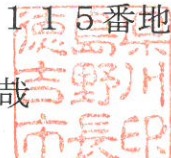 115番地
哉
徳島県
吉野川
市長印